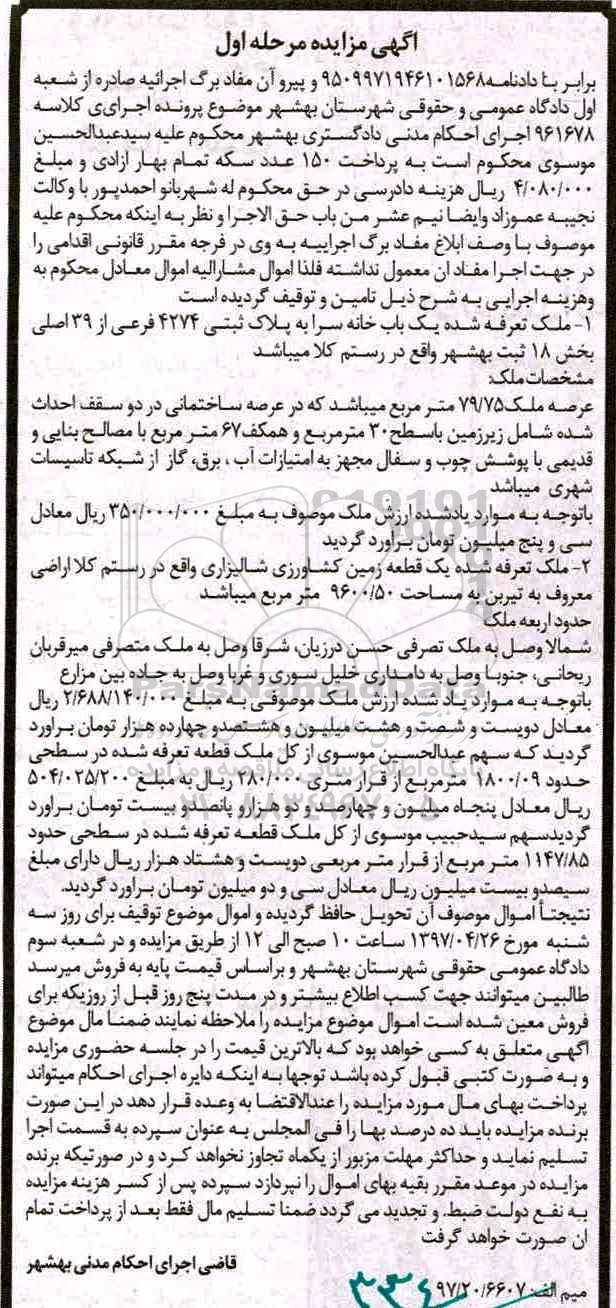 آگهی مزایده مرحله اول
برابر با دادنامه ۹۵۰۹۹۷۱۹۴۶۱۰۱۵۶۸ و پیرو آن مفاد برگ اجرائیه صادره از شعبه
اول دادگاه عمومی و حقوقی شهرستان بهشهر موضوع پرونده اجرای‌ی کلاسه
۹۶۱۶۷۸ اجرای احکام مدنی دادگستری بهشهر محکوم علیه سیدعبدالحسین
موسوی محکوم است به پرداخت ۱۵۰ عدد سکه تمام بهار ازادی و مبلغ
۴/۰۸۰/۰۰۰ ریال هزینه دادرسی در حق محکوم له شهربانو احمدپور با وکالت
نجیبه عموزاد وایضا نیم عشر من باب حق الاجرا و نظر به اینکه محکوم علیه
موصوف با وصف ابلاغ مفاد برگ اجراییه به وی در فرجه مقرر قانونی اقدامی را
در جهت اجرا مفاد ان معمول نداشته فلذا اموال مشارالیه اموال معادل محکوم به
وهزینه اجرایی به شرح ذیل تامین و توقیف گردیده است
۱- ملک تعرفه شده یک باب خانه سرا به پلاک ثبتی ۴۲۷۴ فرعی از ۳۹ اصلی
بخش ۱۸ ثبت بهشهر واقع در رستم کلا میباشد
مشخصات ملک:
عرصه ملک ۷۹/۷۵ متر مربع میباشد که در عرصه ساختمانی در دو سقف احداث
شده شامل زیرزمین باسطح ۳۰ مترمربع و همکف ۶۷ متر مربع با مصالح بنایی و
قدیمی با پوشش چوب و سفال مجهز به امتیازات آب ، برق، گاز از شبکه تاسیسات
شهری میباشد
باتوجه به موارد یادشده ارزش ملک موصوف به مبلغ ۳۵۰/۰۰۰/۰۰۰ ریال معادل
سی و پنج میلیون تومان براورد گردید
۲- ملک تعرفه شده یک قطعه زمین کشاورزی شالیزاری واقع در رستم کلا اراضی
معروف به تیربن به مساحت ۹۶۰۰/۵۰ متر مربع میباشد
حدود اربعه ملک
شمالا وصل به ملک تصرفی حسن درزیان، شرقا وصل به ملک متصرفی میرقربان
ریحانی، جنوبا وصل به دامداری خلیل سوری و غربا وصل به جاده بین مزارع
باتوجه به موارد یاد شده ارزش ملک موصوفی به مبلغ ۲/۶۸۸/۱۴۰/۰۰۰ ریال
معادل دویست و شصت و هشت میلیون و هشتصدو چهارده هزار تومان براورد
گردید که سهم عبدالحسین موسوی از کل ملک قطعه تعرفه شده در سطحی
حدود ۱۸۰۰/۰۹ مترمربع از قرار متری ۲۸۰/۰۰۰ ریال به مبلغ ۵۰۴/۰۲۵/۲۰۰
ریال معادل پنجاه میلیون و چهارصد و دو هزارو پانصدو بیست تومان براورد
گردیدسهم سیدحبیب موسوی از کل ملک قطعه تعرفه شده در سطحی حدود
۱۱۴۷/۸۵ متر مربع از قرار متر مربعی دویست و هشتاد هزار ریال دارای مبلغ
سیصدو بیست میلیون ریال معادل سی و دو میلیون تومان براورد گردید.
نتیجتاً اموال موصوف آن تحویل حافظ گردیده و اموال موضوع توقیف برای روز سه
شنبه مورخ ۱۳۹۷/۰۴/۲۶ ساعت ۱۰ صبح الی ۱۲ از طریق مزایده و در شعبه سوم
دادگاه عمومی حقوقی شهرستان بهشهر و براساس قیمت پایه به فروش میرسد
طالبین میتوانند جهت کسب اطلاع بیشتر و در مدت پنج روز قبل از روزیکه برای
فروش معین شده است اموال موضوع مزایده را ملاحظه نمایند ضمنا مال موضوع
اگهی متعلق به کسی خواهد بود که بالاترین قیمت را در جلسه حضوری مزایده
و به صورت کتبی قبول کرده باشد توجها به اینکه دایره اجرای احکام میتواند
پرداخت بهای مال مورد مزایده را عندالاقتضا به وعده قرار دهد در این صورت
برنده مزایده باید ده درصد بها را فی المجلس به عنوان سپرده به قسمت اجرا
تسلیم نماید و حداکثر مهلت مزبور از یکماه تجاوز نخواهد کرد و در صورتیکه برنده
مزایده در موعد مقرر بقیه بهای اموال را نپردازد سپرده پس از کسر هزینه مزایده
به نفع دولت ضبط، و تجدید می گردد ضمنا تسلیم مال فقط بعد از پرداخت تمام
ان صورت خواهد گرفت
قاضی اجرای احکام مدنی بهشهر
میم الف: ۹۷/۲۰/۶۶۰۷
۳۳۴
ParsNamadData
پایگاه اطلاع رسانی مناقصه و مزایده